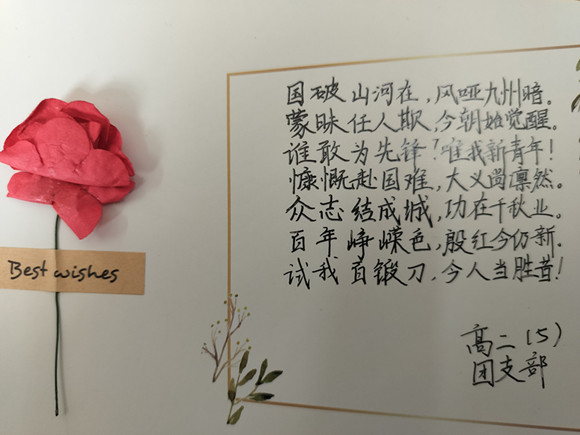 Best wishes
国破山河在,风哑九州暗。
蒙昧任人欺,今朝始觉醒。
谁敢为先锋?唯我新青年!
慷慨赴国难,大义尚凛然。
众志结成城,功在千秋业。
百年峥嵘色,殷红今仍新。
试我百锻刀,今人当胜昔!
高二(5)
团支部